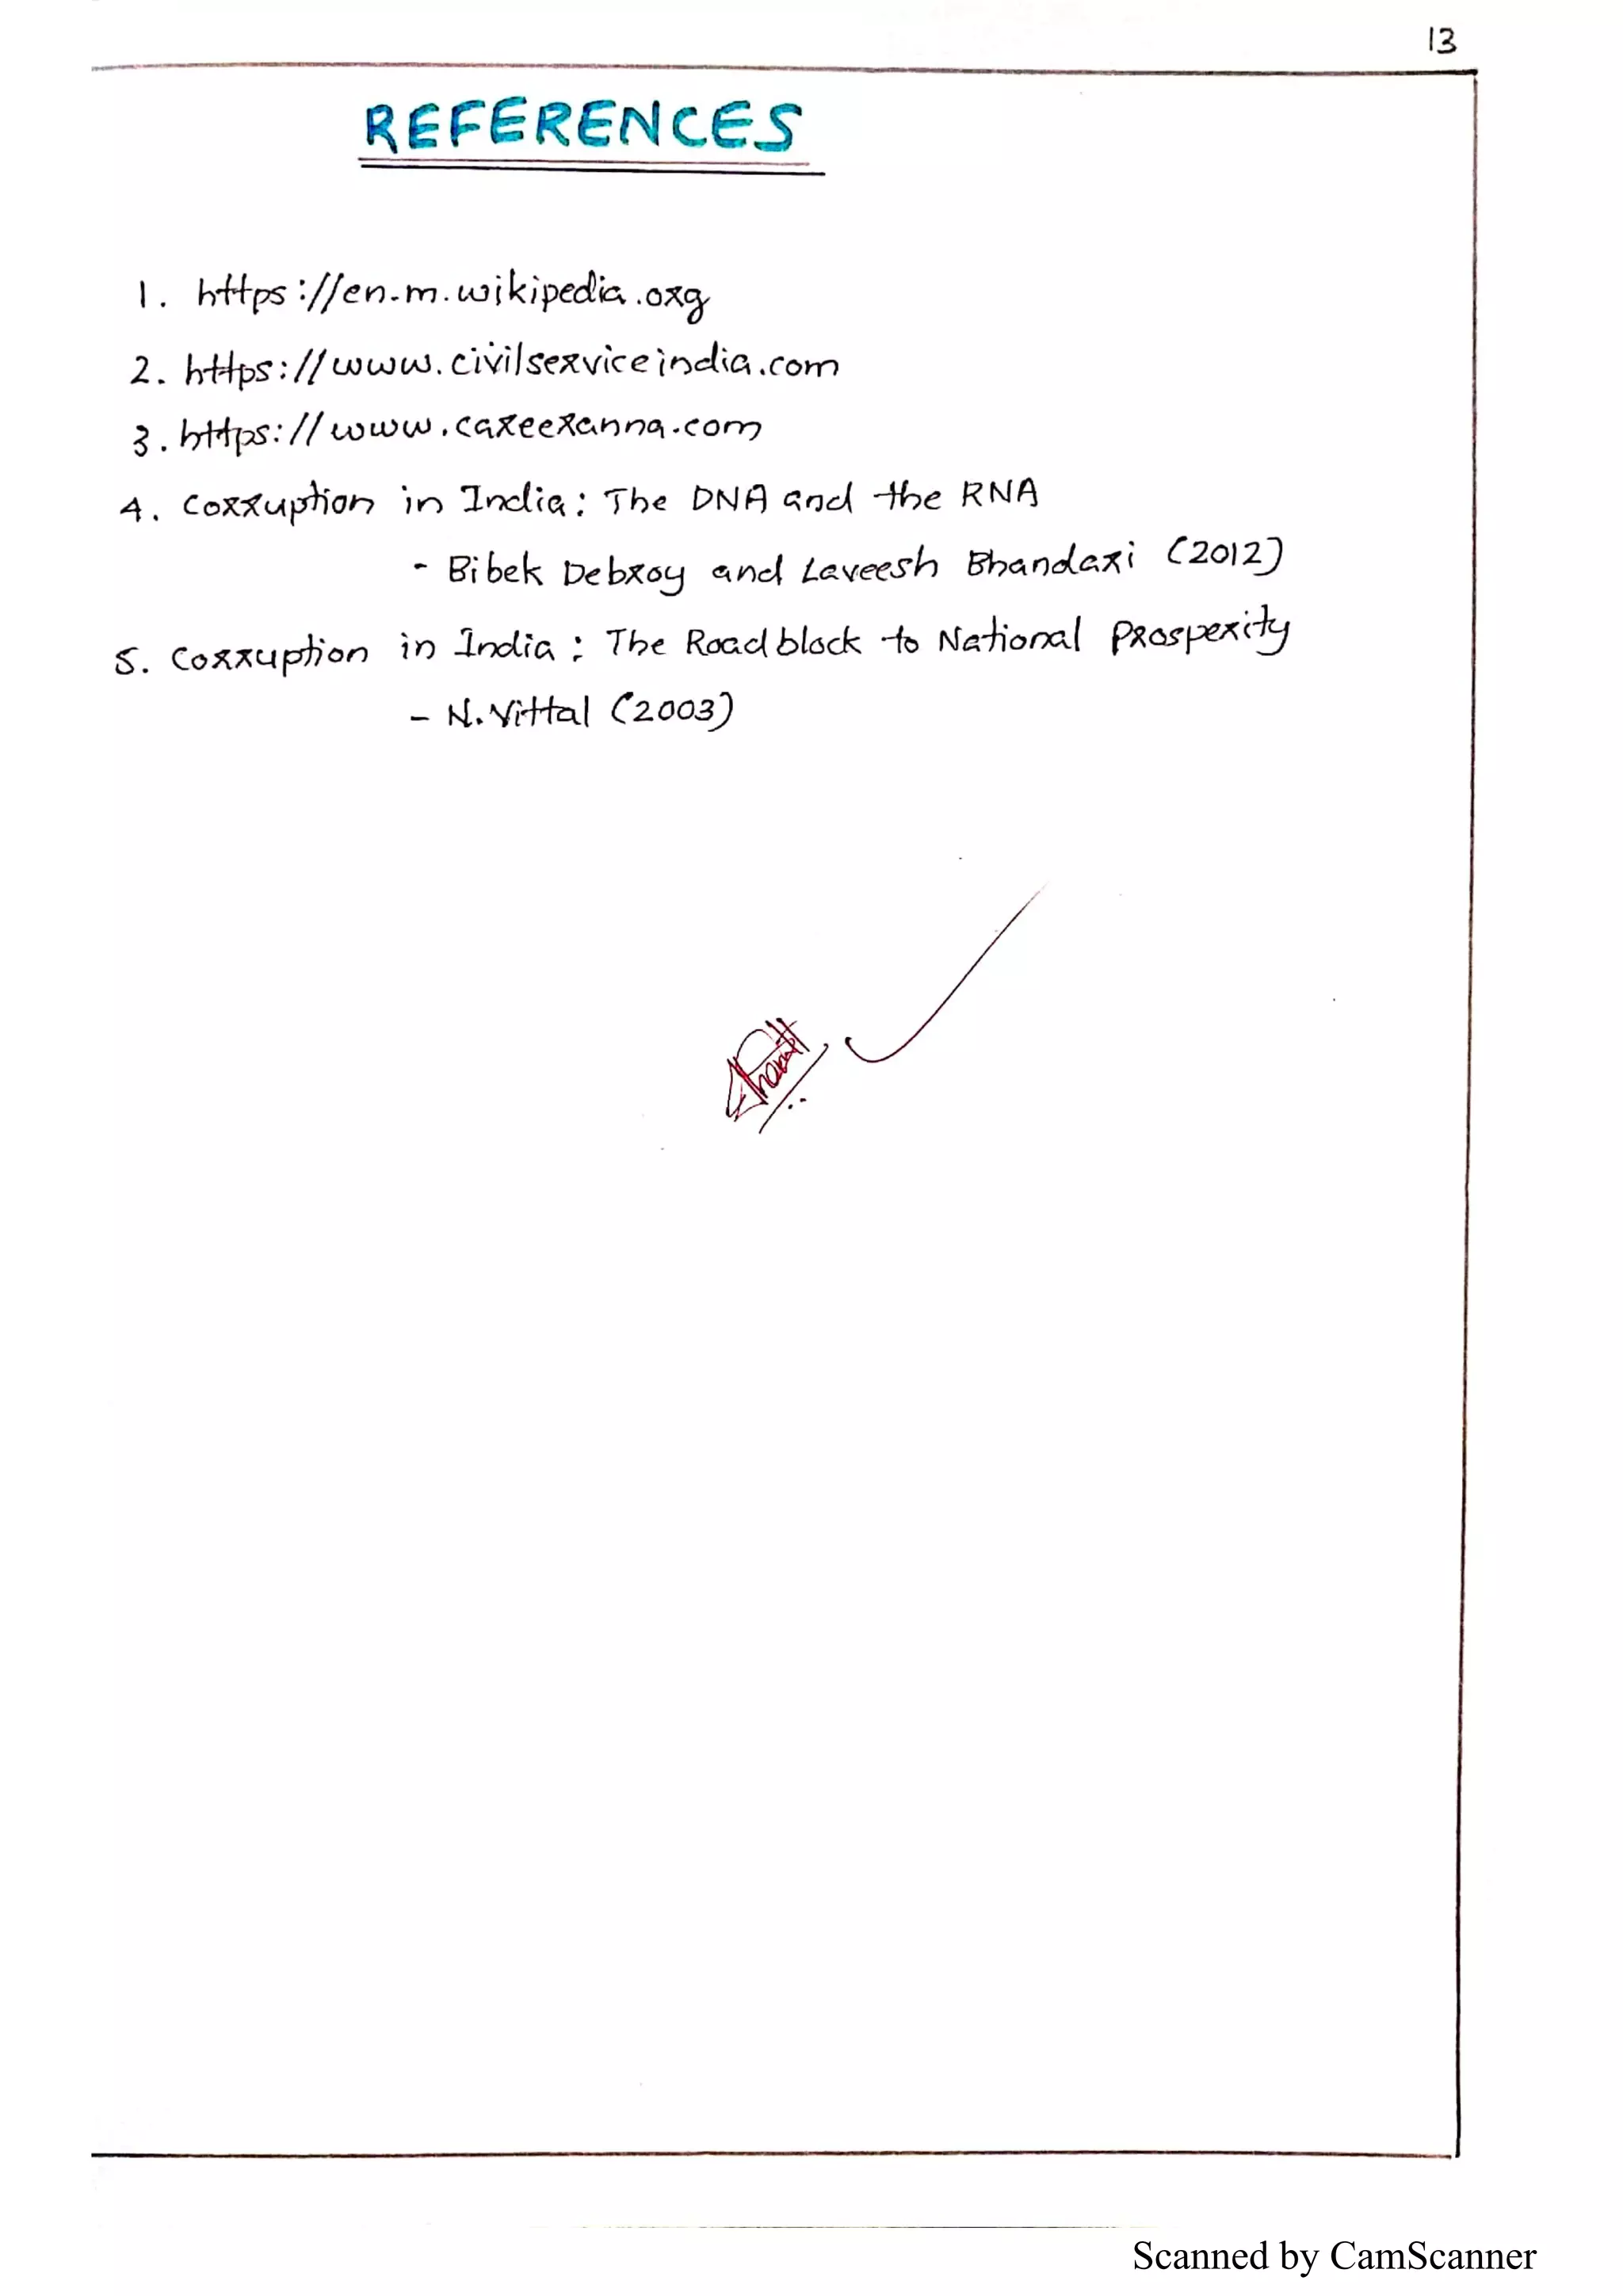 13
REFERENCES
1. https://en.m.wikipedia.org
2. https://www.civilserviceindia.com
3. https://www.careeranna.com
4. Corruption in India: The DNA and the RNA
- Bibek Debroy and Laveesh Bhandari (2012)
5. Corruption in India: The Roadblock to National Prosperity
- N. Vittal (2003)
Scanned by CamScanner